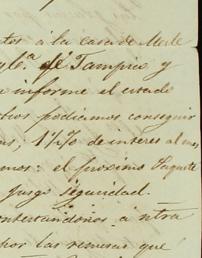 tes á la casa de Merle
y Cª. de Tampico y
informe el estado
podiamos conseguir
1½% de interes al mes
: el proximo Paquete
juzgo seguridad.
ontestandonos á ntra
por las remesas que